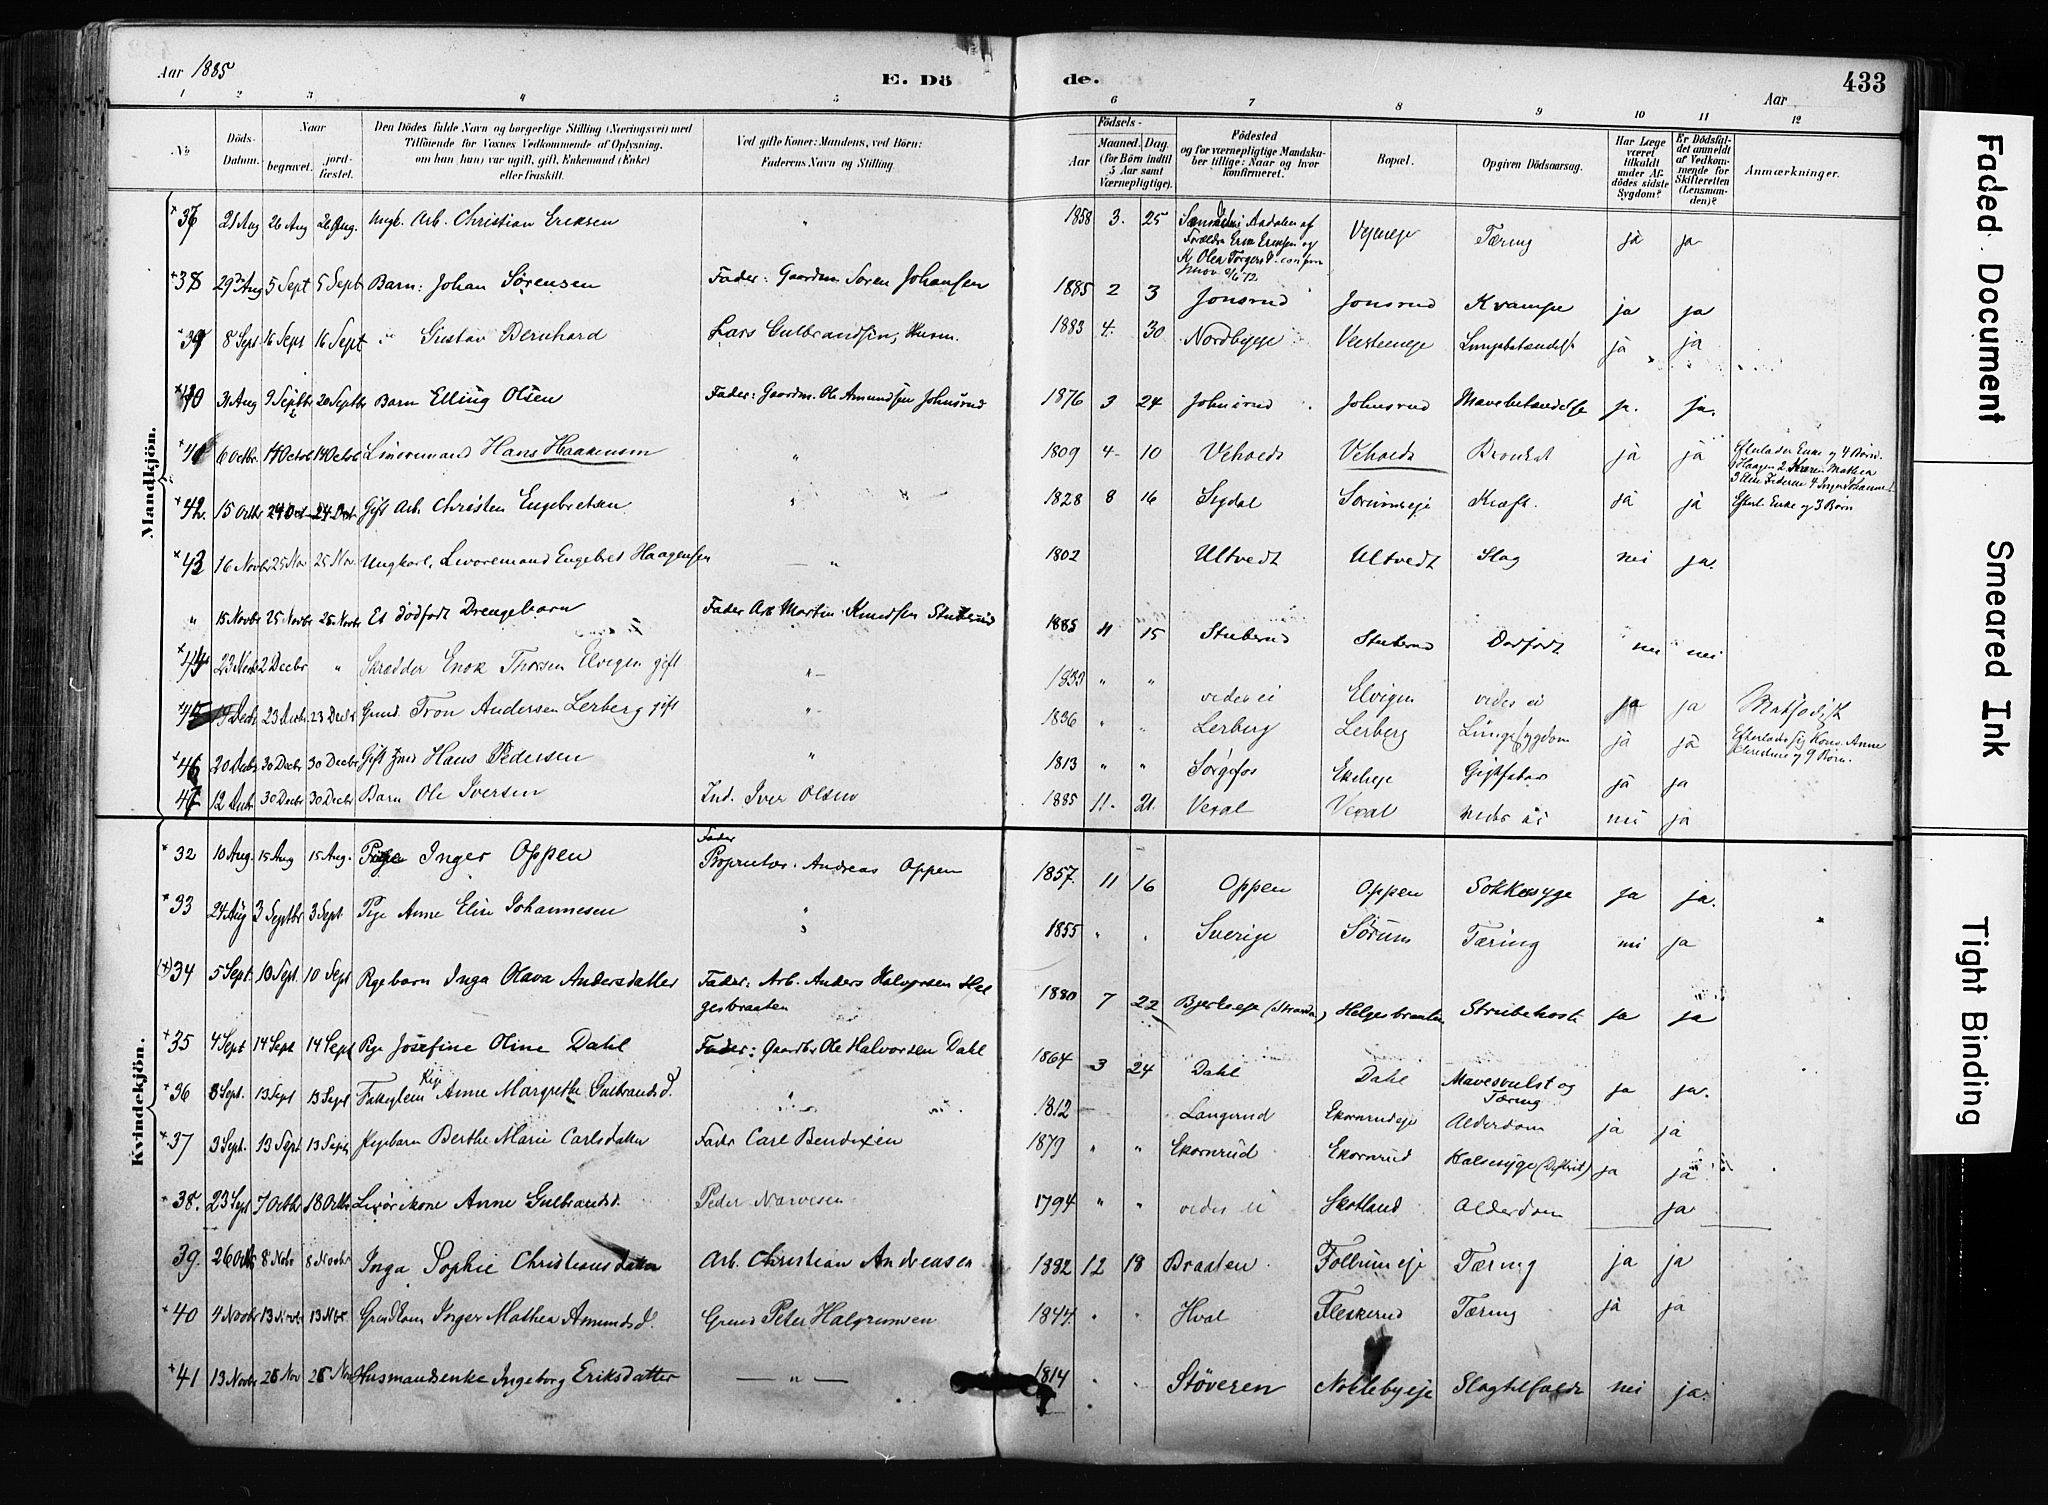 Aar 1885
E. Dö
de.
Aar
433
1 2 3 4 5 6 7 8 9 10 11 12
No
Döds-Datum.
Naar
begravet.
jord-fæstet.
Den Dödes fulde Navn og borgerlige Stilling (Næringsvei) med
Tilföiende for Voxnes Vedkommende af Oplysning,
om han (hun) var ugift, gift, Enkemand (Enke)
eller fraskilt.
Ved gifte Koner: Mandens, ved Börn:
Faderens Navn og Stilling.
Födsels-
Aar
Maaned. Dag.
(for Börn indtil
5 Aar samt
Værnepligtige).
Födested
og for værnepligtige Mandska-
ber tillige: Naar og hvor
konfirmeret.
Bopæl.
Opgiven Dödsaarsag.
Har Læge
været
tilkaldt
under Af-
dödes sidste
Sygdom?
Er Dödsfal-
det anmeldt
af Vedkom-
mende for
Skifteretten
(Lensman-
den)?
Anmærkninger.
Mandkjön.
+37 21 Aug 26 Aug 26 Aug. Ungk. Arb. Christian Eriksen " 1858 3. 25 Aadalen af Forældre Erik Eriksen og Olea Torgersd. Tæring ja ja
+38 29 Aug 5 Sept 5 Sept Barn: Johan Sørensen Fader: Gaardm Soren Johansen 1885 2 3 Jonsrud Jonsrud Krampe ja ja
+39 8 Sept 16 Sept 16 Sept " Gustav Bernhard Lars Gulbrandsen, Husm. 1883 4. 30 Nordbygge Lungebetændelse ja ja
+40 31 Aug 9 Septbr 20 Septbr Barn Elling Olsen Fader: Gaardm. Ole Amundsen Johnsrud 1876 3 24 Johnsrud Johnsrud Mavebetændelse ja ja.
+41 6 Octbr 14 Octob 14 Octob Hans Haakensen " 1809 4 10 Veholdt Veholdt ja ja Efterlader Enke og 4 Børn
+42. 15 Octbr 24 Oct 24 Oct Gift Arb. Christen Engebretsen " 1828 8 16 Sigdal Sorumseje Kræft. ja ja Efterl. Enke og 3 Børn
+43 16 Novbr 25 Nov 25 Nov. Ungkarl, Engebret Haagensen " 1802 Ultvedt Ultvedt Slag nei ja.
" 15 Novbr 25 Novbr 25 Novbr Et dødfødt Drengebarn Fader Arb Martin Knudsen Stuberud 1885 11 15 Stuberud Stuberud Dødfødt nei nei
+44 23 Novbr 2 Decbr " Skrædder Enok Thorsen Elvigen gift " " " vides ei Elvigen vides ei ja ja
+45 23 Decbr 23 Decbr Grund. Tron Andersen Lerberg gift " 1836 " " Lerberg Lerberg Lungesygdom ja ja
+46 20 Decbr 30 Decbr 30 Decbr Gift Hans Pedersen " 1813 " " Sørgefos Gigtfeber ja ja
47 12 Decbr 30 Decbr 30 Decbr Barn Ole Iversen Ind. Iver Olsen 1885 11. 21. Vexal Vexal vides ei nei ja
Kvindekjön.
+32 10 Aug. 15 Aug 15 Aug. Pige Inger Oppen Fader Proprietær Andreas Oppen 1857. 11 16 Oppen Oppen Sukkersyge ja ja.
+33 24 Aug 3 Septbr 3 Sept Pige Anne Elise Johannesen " 1855 " " Sverige Sørum Tæring nei ja
(+)34 5 Sept. 10 Sept. 10 Sept Pigebarn Inga Olava Andersdatter Fader: Arb. Anders Halvorsen Helgesbraaten 1880 7 22 Helgesbraaten Strubehoste ja ja
+35 4 Sept 14 Sept 14 Sept Pige Josefine Oline Dahl Fader: Gaardbr Ole Halvorsen Dahl 1864 3 24 Dahl Dahl Mavesvulst og Tæring ja ja.
+36 8 Sept. 13 Sept 13 Sept Fattiglem Pige Anne Margrethe Gulbrandsd. " 1812 Langerud Ekornrudeje Alderdom ja ja
+37 3 Sept. 13 Sept 13 Sept Pigebarn Berthe Marie Carlsdatter Fader Carl Bendixen 1879 " " Ekornrud Ekornrud Halsesyge ja ja
+38. 23 Sept 7 Octbr 18 Octbr Anne Gulbrandsd. Peder Narvesen 1794 " " vides ei Skotland Alderdom ja
39. 26 Octb 8 Novbr 8 Novbr Inga Sophie Christiansdatter Arb. Christian Andreasen 1882 12 18 Braaten Follumeje Tæring ja ja
+40 4 Novbr 13 Novbr 13 Nvbr Inger Mathea Amundsd. Grund Peter Halgrimsen 1844 " " Hval Fleskerud Tæring ja ja
+41 13 Novbr 26 Nov 26 Nov Husmandsenke Ingeborg Eriksdatter " 1814 " " Støveren Nokkebyeje Slagtilfælde nei ja.
Faded Document
Smeared Ink
Tight Binding